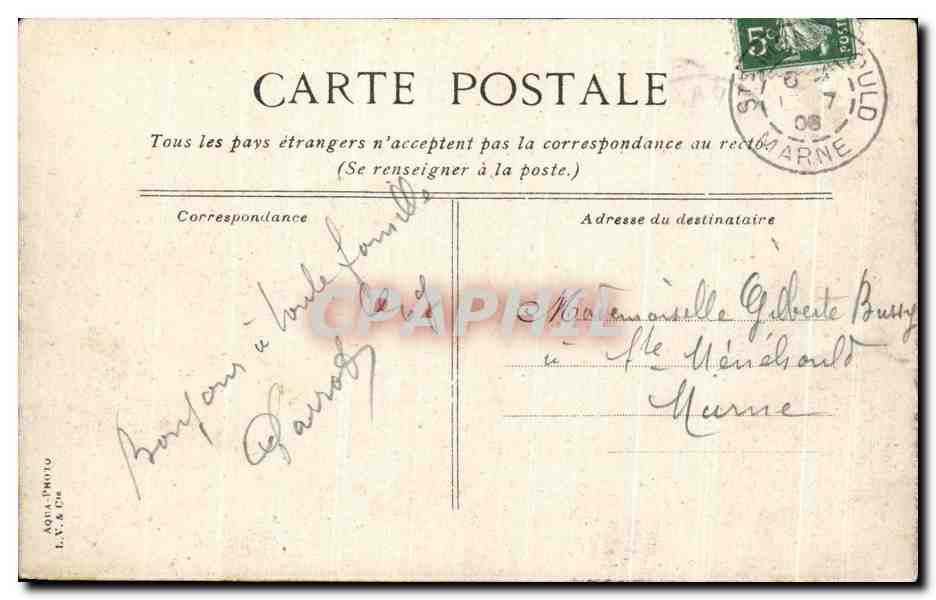 CARTE POSTALE
Tous les pays étrangers n'acceptent pas la correspondance au recto.
(Se renseigner à la poste.)
5c
POST
STE
OULD
7
08
MARNE
Correspondance
Adresse du destinataire
Bonjour à toute famille
CPAPHIL
Mademoiselle Gilberte Bussy
à Ste Ménéhould
Marne
AQUA-PHOTO
L. V. & Cie